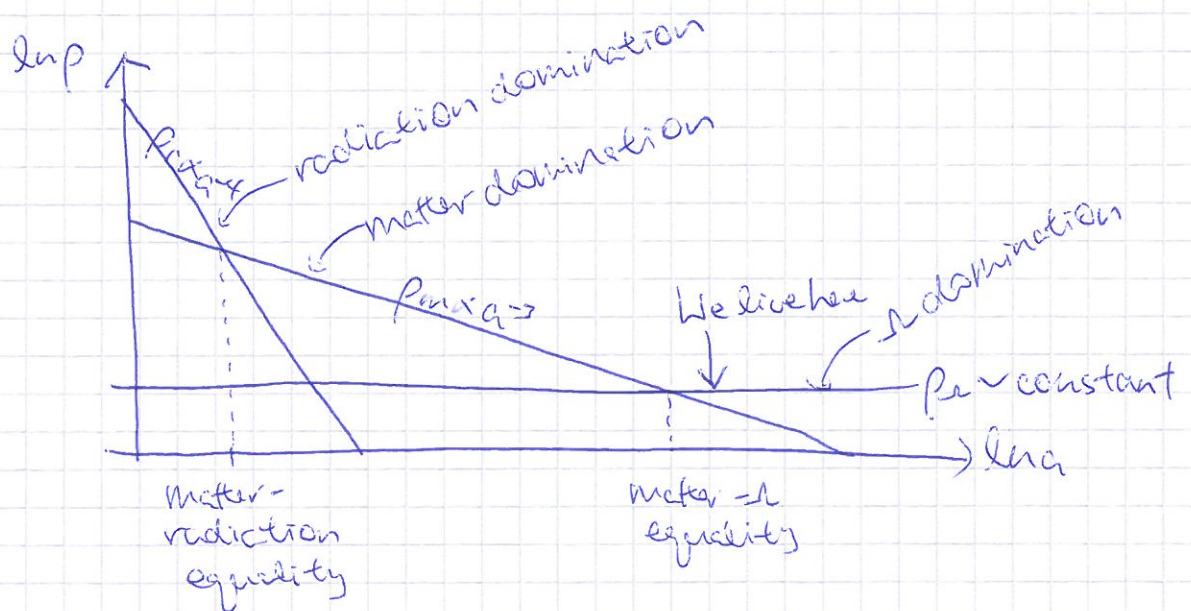 lnρ
radiation domination
matter domination
We live here
Λ domination
ρΛ ~ constant
lna
matter-
radiation
equality
matter-Λ
equality